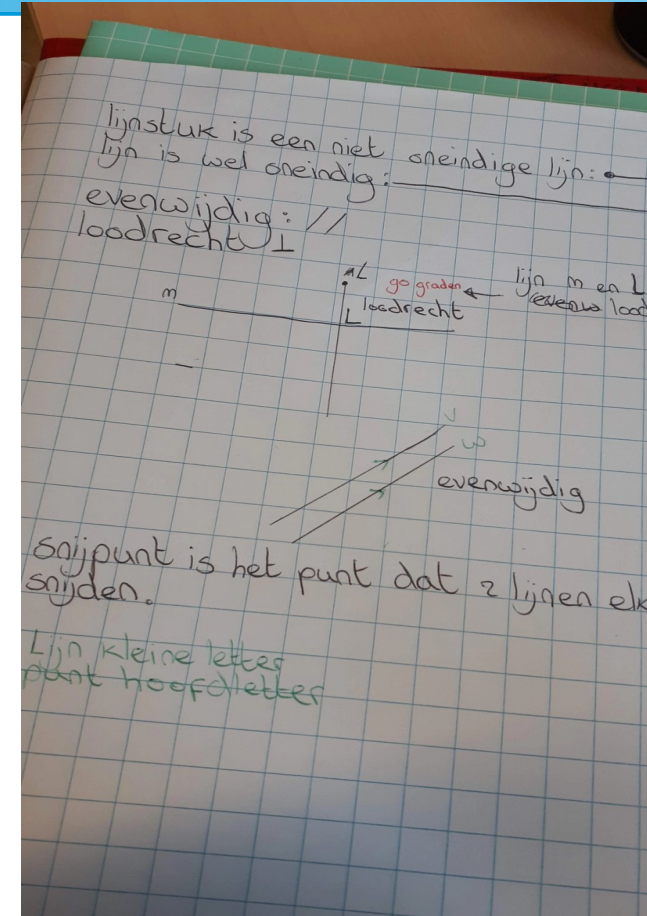 lijnstuk is een niet oneindige lijn:
lijn is wel oneindig:
evenwijdig: //
loodrecht ⊥
L
m
90 graden
loodrecht
lijn m en L
evenw lood
v
w
evenwijdig
snijpunt is het punt dat 2 lijnen elk
snijden.
Lijn kleine letter
punt hoofdletter